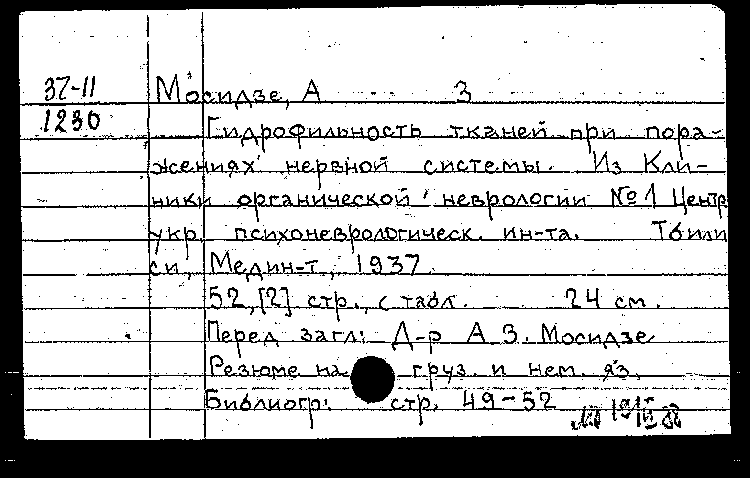 37-11 Мосидзе, А З
1230 Гидрофильность тканей при пора-
жениях нервной системы. Из Кли-
ники органической неврологии №1 Центр
укр. психоневрологическ. ин-та. Тбили
си, Медин-т, 1937.
52, [2] стр., с табл. 24 см.
Перед загл: Д-р А. З. Мосидзе
Резюме на груз. и нем. яз.
Библиогр: стр. 49-52